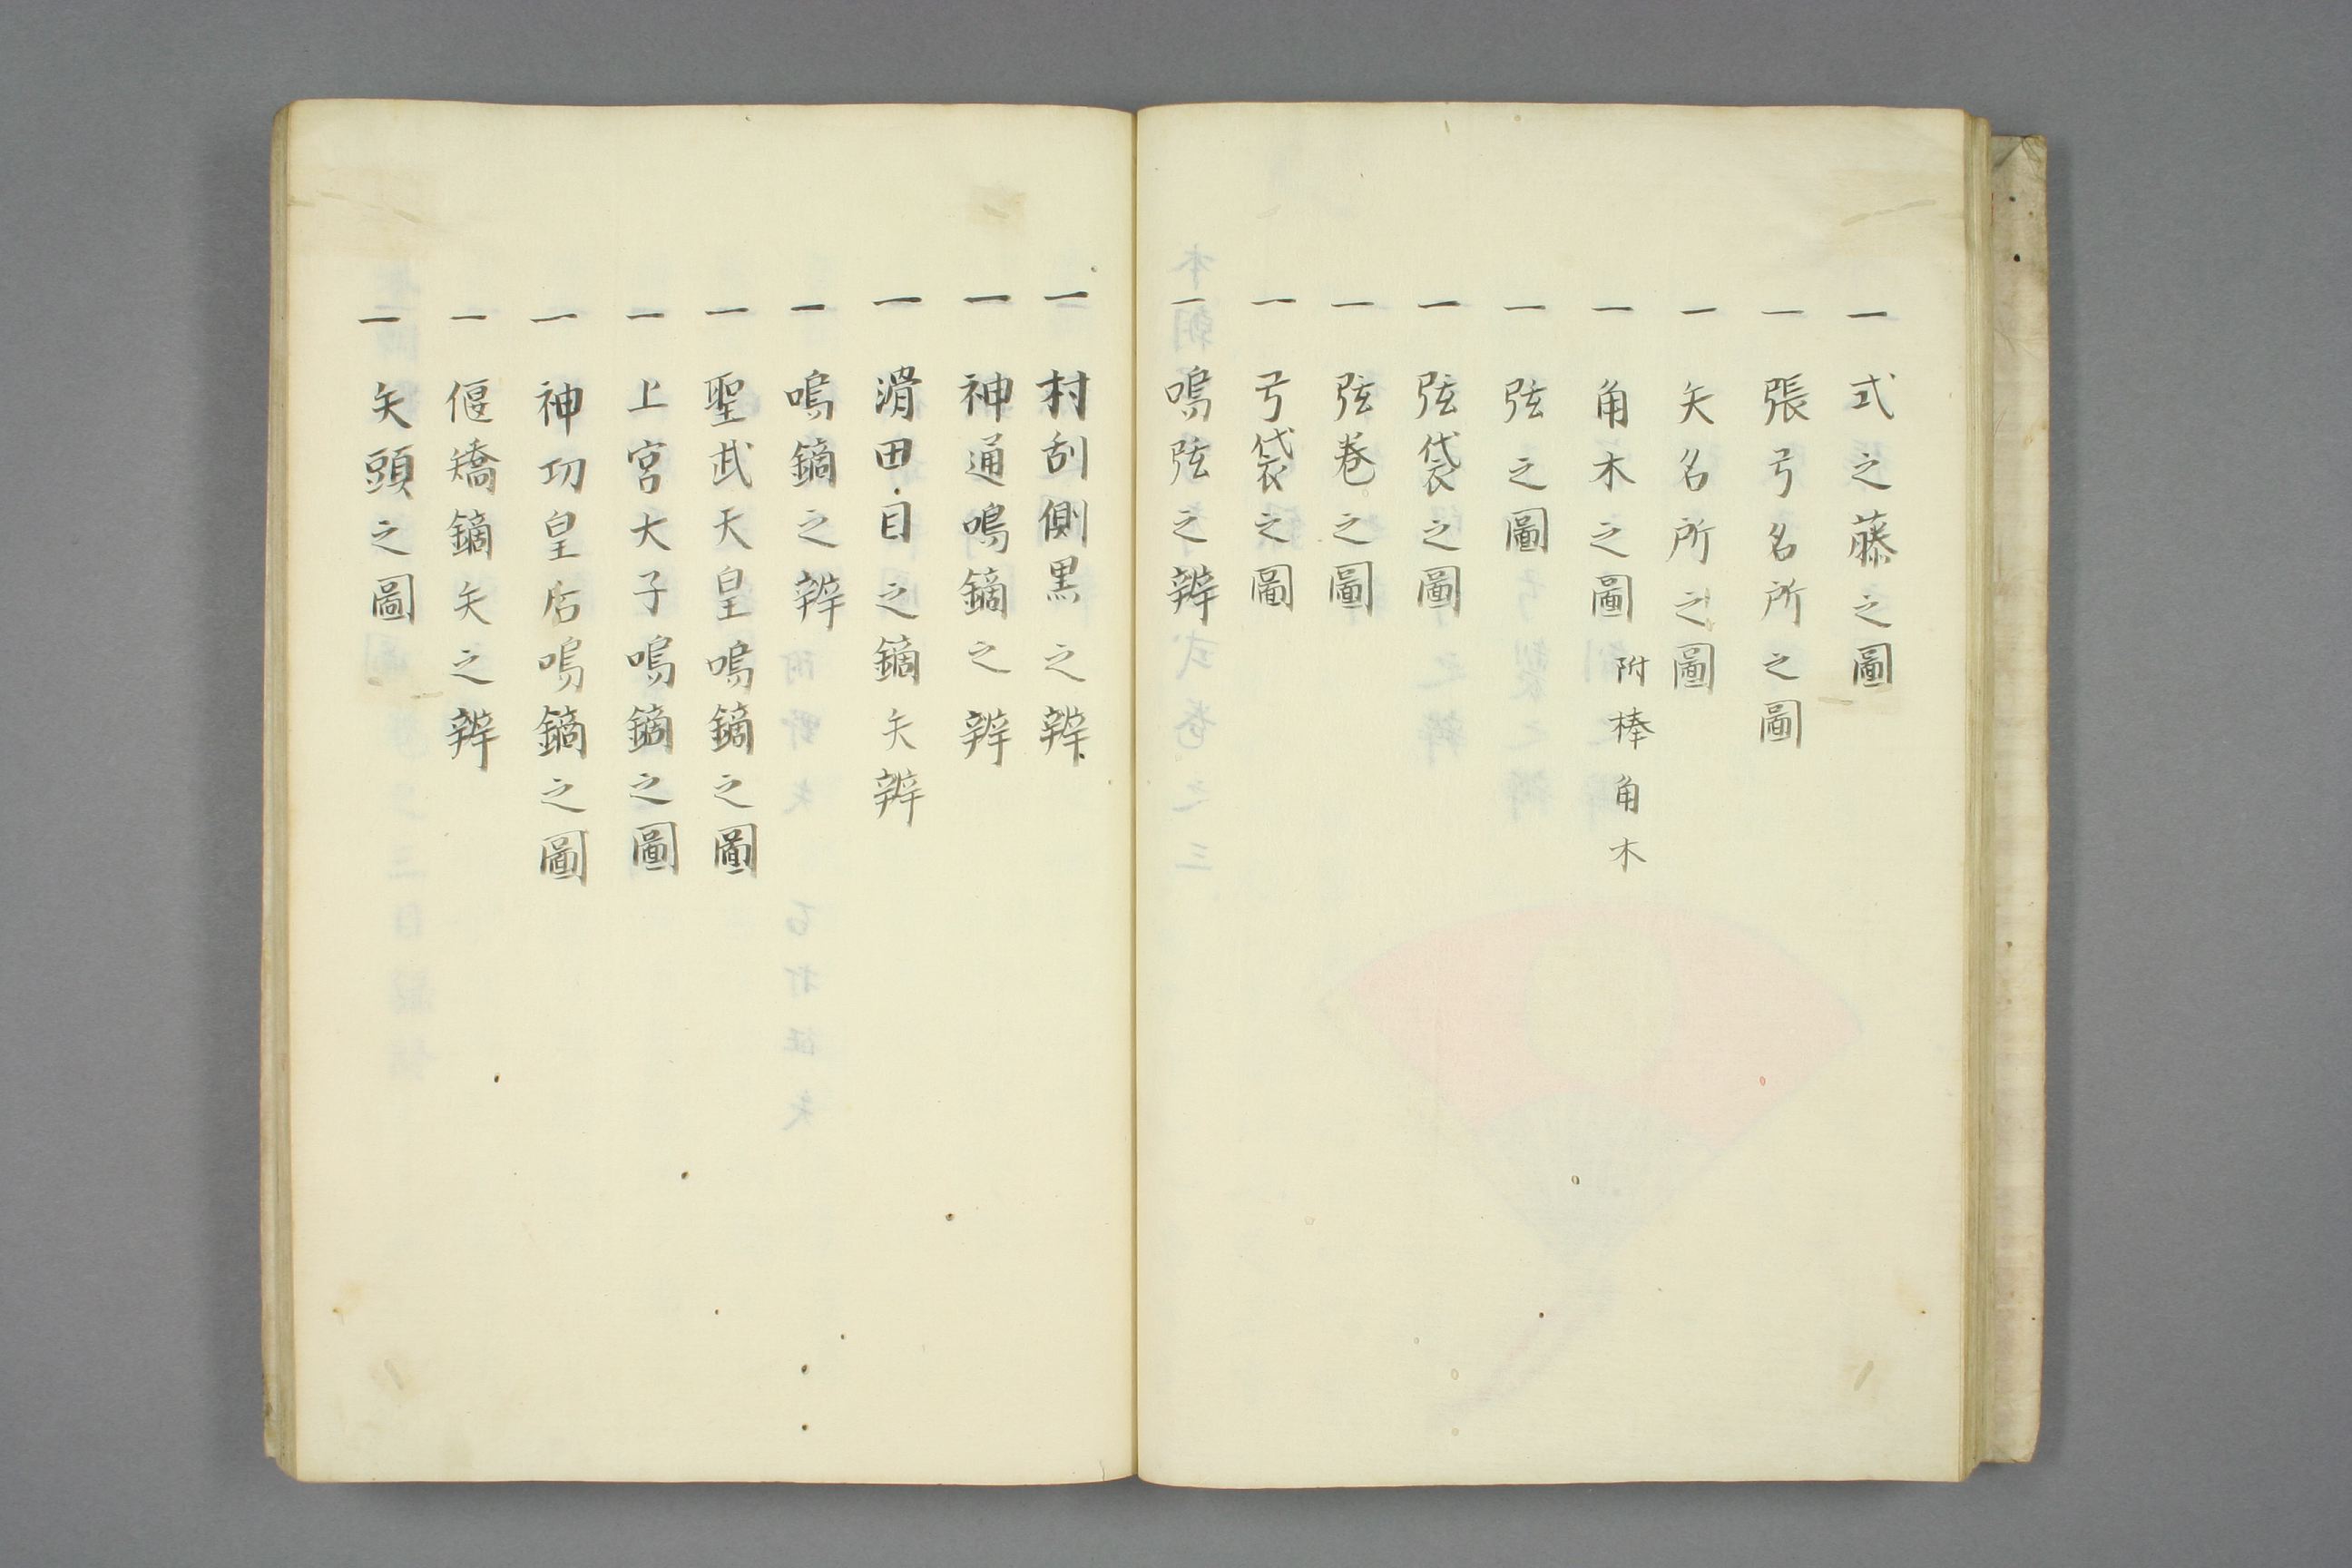 一 式之藤之圖
一 張弓名所之圖
一 矢名所之圖
一 角木之圖 附棒角木
一 弦之圖
一 弦袋之圖
一 弦巻之圖
一 弓袋之圖
一 鳴弦之辨
一 村刮側黒之辨
一 神通鳴鏑之辨
一 滑田目之鏑矢辨
一 鳴鏑之辨
一 聖武天皇鳴鏑之圖
一 上宮大子鳴鏑之圖
一 神功皇后鳴鏑之圖
一 偃矯鏑矢之辨
一 矢頭之圖